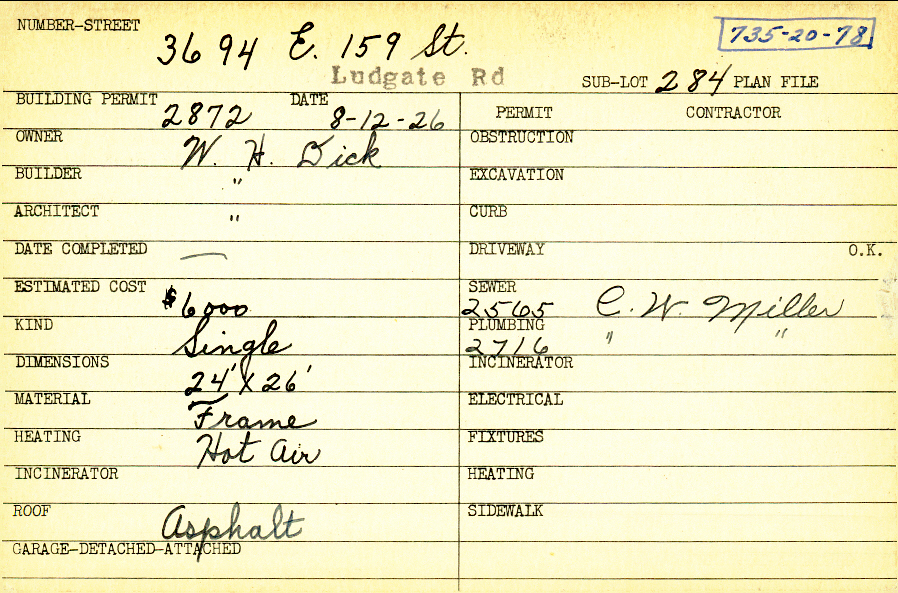 NUMBER-STREET 3694 E. 159 St. 735-20-78
Ludgate Rd SUB-LOT 284 PLAN FILE
BUILDING PERMIT 2872 DATE 8-12-26
PERMIT CONTRACTOR
OWNER W. H. Dick
OBSTRUCTION
BUILDER "
EXCAVATION
ARCHITECT "
CURB
DATE COMPLETED —
DRIVEWAY O.K.
ESTIMATED COST $6000
SEWER 2565 C. W. Miller
KIND Single
PLUMBING 2716 " "
DIMENSIONS 24' X 26'
INCINERATOR
MATERIAL Frame
ELECTRICAL
HEATING Hot Air
FIXTURES
INCINERATOR
HEATING
ROOF Asphalt
SIDEWALK
GARAGE-DETACHED-ATTACHED